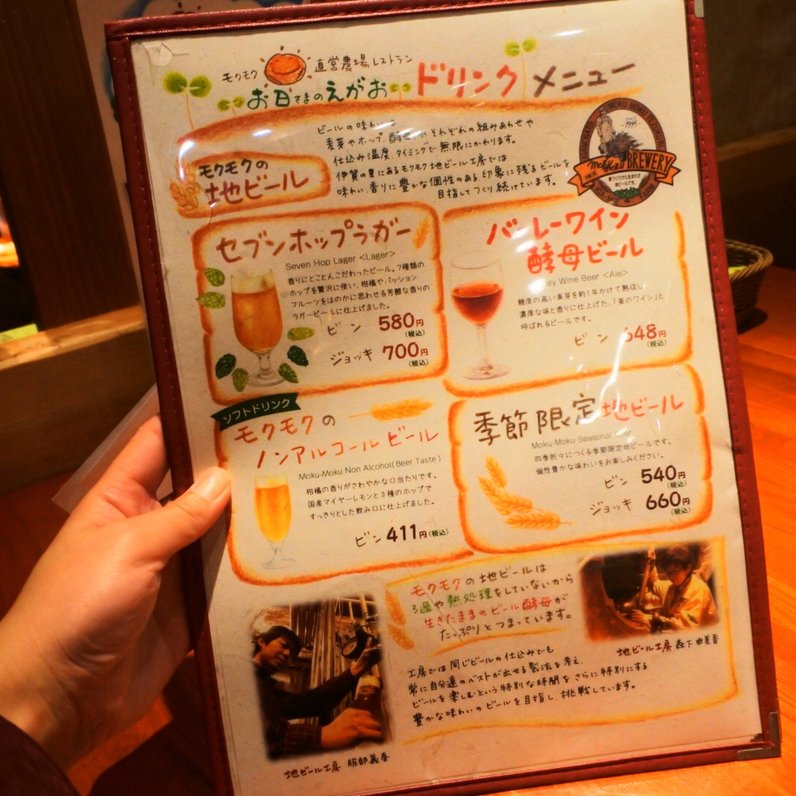 モクモク 直営農場レストラン
お日さまのえがお ドリンクメニュー
モクモクの
地ビール
ビールの味わいは
麦芽やホップ、酵母 それぞれの組みあわせや
仕込み温度、タイミングで無限にかわります。
伊賀の里にあるモクモク地ビール工房では
味わい、香りに豊かな個性のある印象に残るビールを
目指してつくり続けています。
SINCE
1995
Moku Moku
BREWERY
セブンホップラガー
Seven Hop Lager <Lager>
香りにとことんこだわったビール。7種類の
ホップを贅沢に使い、柑橘やパッション
フルーツをほのかに思わせる芳醇な香りの
ラガービールに仕上げました。
ビン 580円(税込)
ジョッキ 700円(税込)
バーレーワイン
酵母ビール
ey Wine Beer <Ale>
糖度の高い麦芽を約1年かけて熟成し
濃厚な味と香りに仕上げた、「麦のワイン」と
呼ばれるビールです。
ビン 648円(税込)
ソフトドリンク
モクモクの
ノンアルコールビール
Moku-Moku Non Alcohol(Beer Taste.)
柑橘の香りがさわやかな口当たりです。
国産マイヤーレモンと3種のホップで
すっきりとした飲み口に仕上げました。
ビン 411円(税込)
季節限定地ビール
Moku-Moku Seasonal
四季折々につくる季節限定地ビールです。
個性豊かな味わいをお楽しみください。
ビン 540円(税込)
ジョッキ 660円(税込)
モクモクの地ビールは
ろ過や熱処理をしていないから
生きたままのビール酵母が
たっぷりとつまっています。
地ビール工房 森下由美香
工房では同じビールの仕込みでも
常に自分達のベストが出せる製法を考え、
ビールを楽しむという特別な時間を さらに特別にする
豊かな味わいのビールを目指し、挑戦しています。
地ビール工房 服部義春